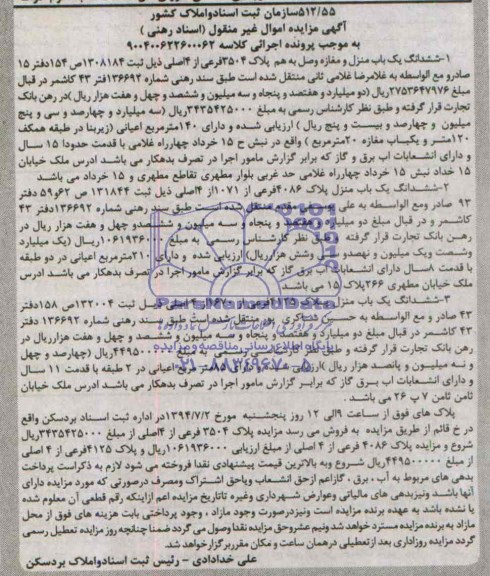 ۵۱۲/۵۵سازمان ثبت اسنادواملاک کشور
آگهی مزایده اموال غیر منقول (اسناد رهنی )
به موجب پرونده اجرائی کلاسه ۹۰۰۴۰۰۶۲۲۶۰۰۰۶۲
۱-ششدانگ یک باب منزل و مغازه وصل به هم پلاک ۳۵۰۴فرعی از ۴اصلی ذیل ثبت ۱۳۰۸۱۸۴ص ۱۵۴دفتر ۱۵
صادرو مع الواسطه به غلامرضا غلامی ثانی منتقل شده است طبق سند رهنی شماره ۱۳۶۶۹۲دفتر ۴۳ کاشمر در قبال
مبلغ ۲۷۵۳۶۴۷۹۷۶ریال (دو میلیارد و هفتصد و پنجاه و سه میلیون و ششصد و چهل و هفت هزار ریال )در رهن بانک
تجارت قرار گرفته و طبق نظر کارشناس رسمی به مبلغ ۳۴۳۵۴۲۵۰۰۰ریال (سه میلیارد و چهارصد و سی و پنج
میلیون و چهارصد و بیست و پنج ریال ) ارزیابی شده و دارای ۱۴۰مترمربع اعیانی (زیربنا در طبقه همکف
۱۲۰متر و یکباب مغازه ۲۰مترمربع ) واقع در نبش ح ۱۵ خرداد چهارراه غلامی با قدمت حدودا ۱۵ سال
و دارای انشعابات آب برق و گاز که برابر گزارش مامور اجرا در تصرف بدهکار می باشد ادرس ملک خیابان
۱۵ خداد نبش ۱۵ خرداد چهارراه غلامی حد غربی بلوار مطهری تقاطع مطهری و ۱۵ خرداد می باشد
۲-ششدانگ یک باب منزل پلاک ۴۰۸۶فرعی از ۱۰۷۱از ۴اصلی ذیل ثبت ۱۳۱۸۴۴ ص ۶۲و۵۹ دفتر
۹۳ صادر ومع الواسطه به علی منتقل شده است طبق سند رهنی شماره ۱۳۶۶۹۲دفتر ۴۳
کاشمر و در قبال مبلغ دو میلیارد و هفتصد و پنجاه و سه میلیون و ششصدو چهل و هفت هزار ریال در
رهن بانک تجارت قرار گرفته و طبق نظر کارشناس رسمی به مبلغ ۱۰۶۱۹۳۶۰۰۰ریال (یک میلیارد
وشصت ویک میلیون و نهصدو سی وشش هزارریال) ارزیابی شده و دارای ۲۱۰مترمربع اعیانی در دو طبقه
با قدمت ۸سال دارای انشعابات اب برق گاز که برابر گزارش مامور اجرا در تصرف بدهکار می باشد ادرس
ملک خیابان مطهری ۲۶۶پلاک ۱۵ می باشد
۳-ششدانگ یک باب منزل پلاک ۴۱۲۵فرعی از اصلی ذیل ثبت ۱۳۲۰۰۴ص ۱۵۸دفتر
۴۳ صادر و مع الواسطه به حسن پور منتقل شده است طبق سند رهنی شماره ۱۳۶۶۹۲ دفتر
۴۳ کاشمر در قبال مبلغ دو میلیارد و هفتصد و پنجاه و سه میلیون و ششصد و چهل و هفت هزارریال در
رهن بانک تجارت قرار گرفته و طبق نظر کارشناس رسمی به مبلغ ۴۴۹۵۰۰۰۰۰ریال (چهارصد و چهل
و نه میلیون و پانصد هزار ریال )ارزیابی شده و دارای مترمربع اعیانی در ۲ طبقه با قدمت ۱۱ سال
و دارای انشعابات اب برق و گاز که برابر گزارش مامور اجرا در تصرف بدهکار می باشد ادرس ملک خیابان
ثامن ثامن ۷ پ ۲۶ می باشد .
پلاک های فوق از ساعت ۹الی ۱۲ روز پنجشنبه مورخ ۱۳۹۴/۷/۲در اداره ثبت اسناد بردسکن واقع
در خ قائم از طریق مزایده به فروش می رسد مزایده پلاک ۳۵۰۴ فرعی از ۴اصلی از مبلغ ۳۴۳۵۴۲۵۰۰۰ریال
شروع و مزایده پلاک ۴۰۸۶ فرعی از ۴ اصلی از مبلغ ارزیابی ۱۰۶۱۹۳۶۰۰۰ریال و پلاک ۴۱۲۵فرعی از ۴ اصلی
از مبلغ ۴۴۹۵۰۰۰۰۰ریال شروع وبه بالاترین قیمت پیشنهادی نقدا فروخته می شود لازم به ذکراست پرداخت
بدهی های مربوط به آب ، برق ، گازاعم ازحق انشعاب ویاحق اشتراک ومصرف درصورتی که مورد مزایده دارای
آنها باشد ونیزبدهی های مالیاتی وعوارض شهرداری وغیره تاتاریخ مزایده اعم ازاینکه رقم قطعی آن معلوم شده
یا نشده باشد به عهده برنده مزایده است ونیزدرصورت وجود مازاد ، وجود پرداختی بابت هزینه های فوق از محل
مازاد به برنده مزایده مسترد خواهد شد ونیم عشروحق مزایده نقدا وصول می گردد ضمنا چنانچه روز مزایده تعطیل رسمی
گردد مزایده روزاداری بعد ازتعطیلی درهمان ساعت و مکان مقرربرگزارخواهد شد.
علی خدادادی - رئیس ثبت اسنادواملاک بردسکن
پایگاه اطلاع رسانی مناقصه و مزایده
۰۲۱-۸۸۳۴۹۶۷۰-۵